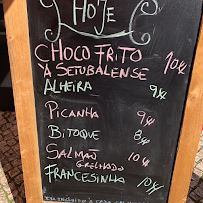 HOJE
CHOCO FRITO 10€
À SETUBALENSE
ALHEIRA 9€
PICANHA 9€
BITOQUE 8€
SALMÃO 10€
GRELHADO
FRANCESINHA 10€